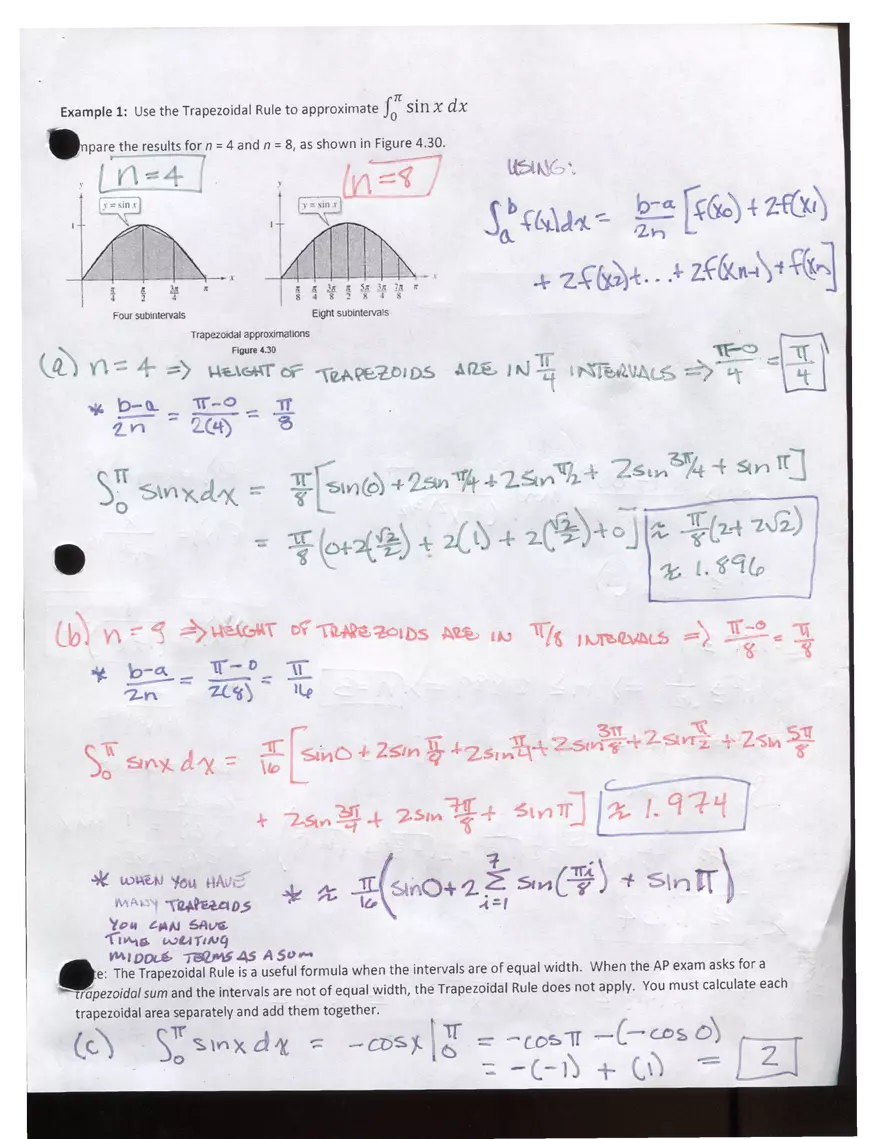 Example 1: Use the Trapezoidal Rule to approximate ∫₀^π sin x dx
npare the results for n = 4 and n = 8, as shown in Figure 4.30.
n=4
n=8
USING:
∫ₐᵇ f(x)dx = (b-a)/2n [f(x₀) + 2f(x₁)
+ 2f(x₂)+...+ 2f(xₙ₋₁) + f(xₙ]
y y
y = sin x y = sin x
1 1
x x
π/4 π/2 3π/4 π π/8 π/4 3π/8 π/2 5π/8 3π/4 7π/8 π
Four subintervals Eight subintervals
Trapezoidal approximations
Figure 4.30
(a) n = 4 => HEIGHT OF TRAPEZOIDS ARE IN π/4 INTERVALS => (π-0)/4 = π/4
* (b-a)/2n = (π-0)/2(4) = π/8
∫₀^π sinxdx = π/8 [sin(0) + 2sin π/4 + 2sin π/2 + 2sin 3π/4 + sin π]
= π/8 (0+2(√2/2) + 2(1) + 2(√2/2)+0] ≈ π/8 (2+ 2√2)
≈ 1.896
(b) n = 8 => HEIGHT OF TRAPEZOIDS ARE IN π/8 INTERVALS => (π-0)/8 = π/8
* (b-a)/2n = (π-0)/2(8) = π/16
∫₀^π sinx dx = π/16 [sin0 + 2sin π/8 + 2sin π/4 + 2sin 3π/8 + 2sin π/2 + 2sin 5π/8
+ 2sin 3π/4 + 2sin 7π/8 + sin π] ≈ 1.974
* WHEN YOU HAVE
MANY TRAPEZOIDS
YOU CAN SAVE
TIME WRITING
MIDDLE TERMS AS A SUM
* ≈ π/16 (sin0 + 2 Σ_{i=1}^{7} sin(πi/8) + sin π)
e: The Trapezoidal Rule is a useful formula when the intervals are of equal width. When the AP exam asks for a
trapezoidal sum and the intervals are not of equal width, the Trapezoidal Rule does not apply. You must calculate each
trapezoidal area separately and add them together.
(c) ∫₀^π sinx dx = -cosx |₀^π = -cosπ -(-cos 0)
= -(-1) + (1) = 2